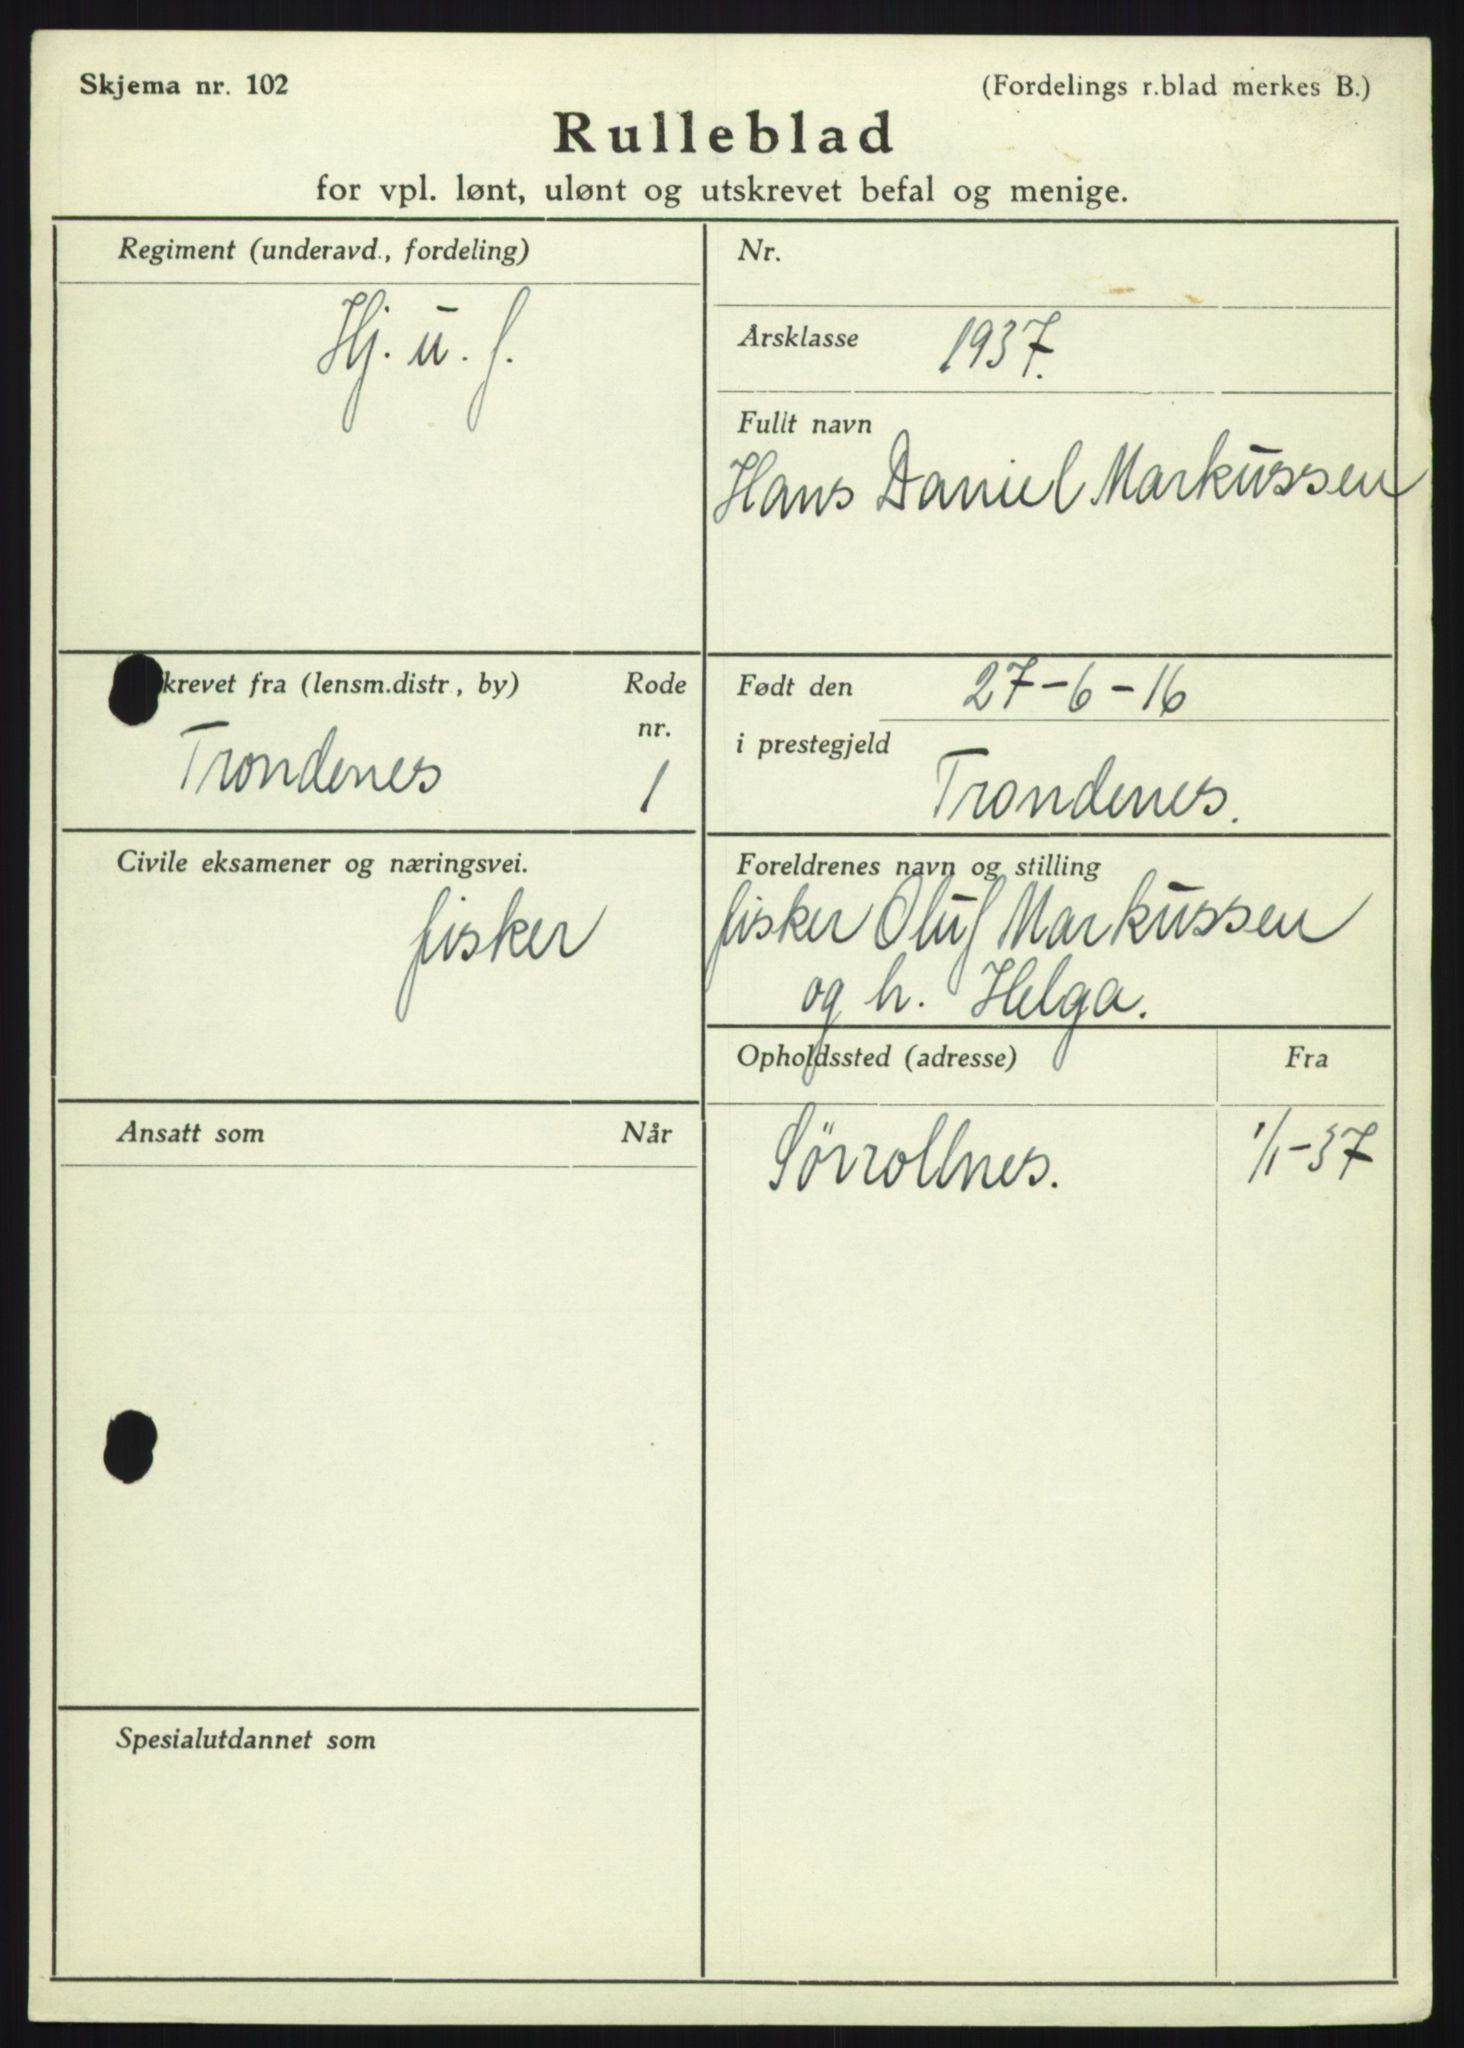 Skjema nr. 102
(Fordelings r.blad merkes B.)
Rulleblad
for vpl. lønt, ulønt og utskrevet befal og menige.
Regiment (underavd., fordeling)
Hj. u. f.
Nr.
Årsklasse 1937.
Fullt navn
Hans Daniel Markussen
krevet fra (lensm.distr., by)
Rode
nr.
Trondenes 1
Født den 27-6-16
i prestegjeld
Trondenes.
Civile eksamener og næringsvei.
fisker
Foreldrenes navn og stilling
fisker Oluf Markussen
og h. Helga.
Opholdssted (adresse) Fra
Sörrollnes. 1/1-37
Ansatt som Når
Spesialutdannet som